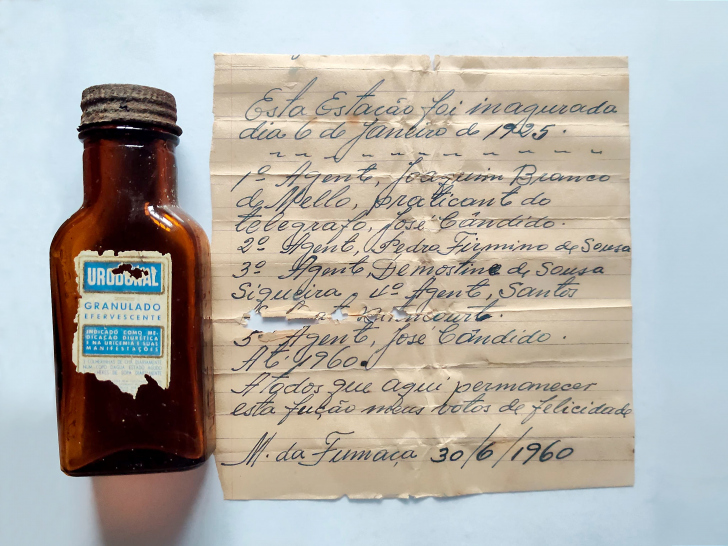 URODONAL
GRANULADO
EFERVESCENTE
INDICADO COMO ME-
DICAÇÃO DIURÉTICA
E NA URICEMIA E SUAS
MANIFESTAÇÕES
Esta Estação foi inagurada
dia 6 de Janeiro de 1925.
1º Agente, Joaquim Branco
de Mello, praticante do
telegrafo, José Cândido.
2º Agent, Pedro Firmino de Sousa
3º Agent, Demostine de Sousa
Siqueira, 4º Agent, Santos
5º Agent, José Cândido.
At 1960.
A todos que aqui permanecer
esta fução meus votos de felicidade
M. da Fumaça 30/6/1960